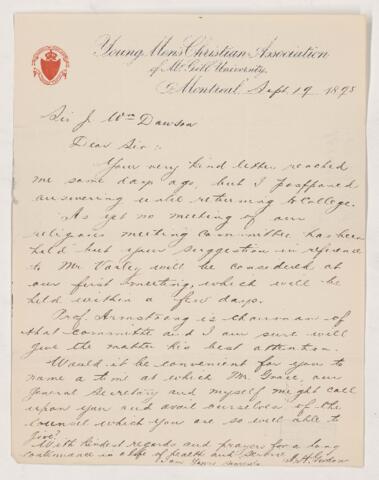 Young Men's Christian Association
of McGill University.
Montreal, Sept. 19 1898
Sir J. Wm Dawson
Dear Sir:
Your very kind letter reached
me some days ago, but I postponed
answering until returning to College.
As yet no meeting of our
religious meeting Committee has been
held but your suggestion in reference
to Mr Varley will be considered at
our first meeting, which will be
held within a few days.
Prof. Armstrong is Chairman of
that committee and I am sure will
give the matter his best attention.
Would it be convenient for you to
name a time at which Mr. Grace, our
General Secretary and myself might call
upon you and avail ourselves of the
counsel which you are so well able to
give?
With kindest regards and prayers for a long
continuance in a life of health and service
I am Yours sincerely A.H. Gordon